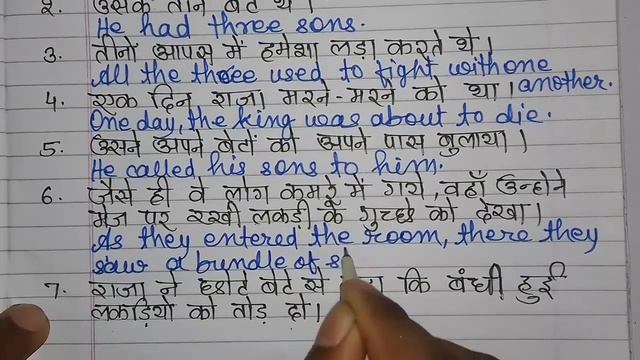 २. उसके तीन बेटे थे।
He had three sons.
3. तीनों आपस में हमेशा लड़ा करते थे।
All the three used to fight with one
another.
4. एक दिन राजा मरने-मरने को था।
One day, the king was about to die.
5. उसने अपने बेटों को अपने पास बुलाया।
He called his sons to him.
6. जैसे ही वे लोग कमरे में गये, वहाँ उन्होने
मेज पर रखी लकड़ी के गुच्छे को देखा।
As they entered the room, there they
saw a bundle of s
7. राजा ने छोटे बेटे से कि बंधी हुई
लकड़ियों को तोड़ दो।